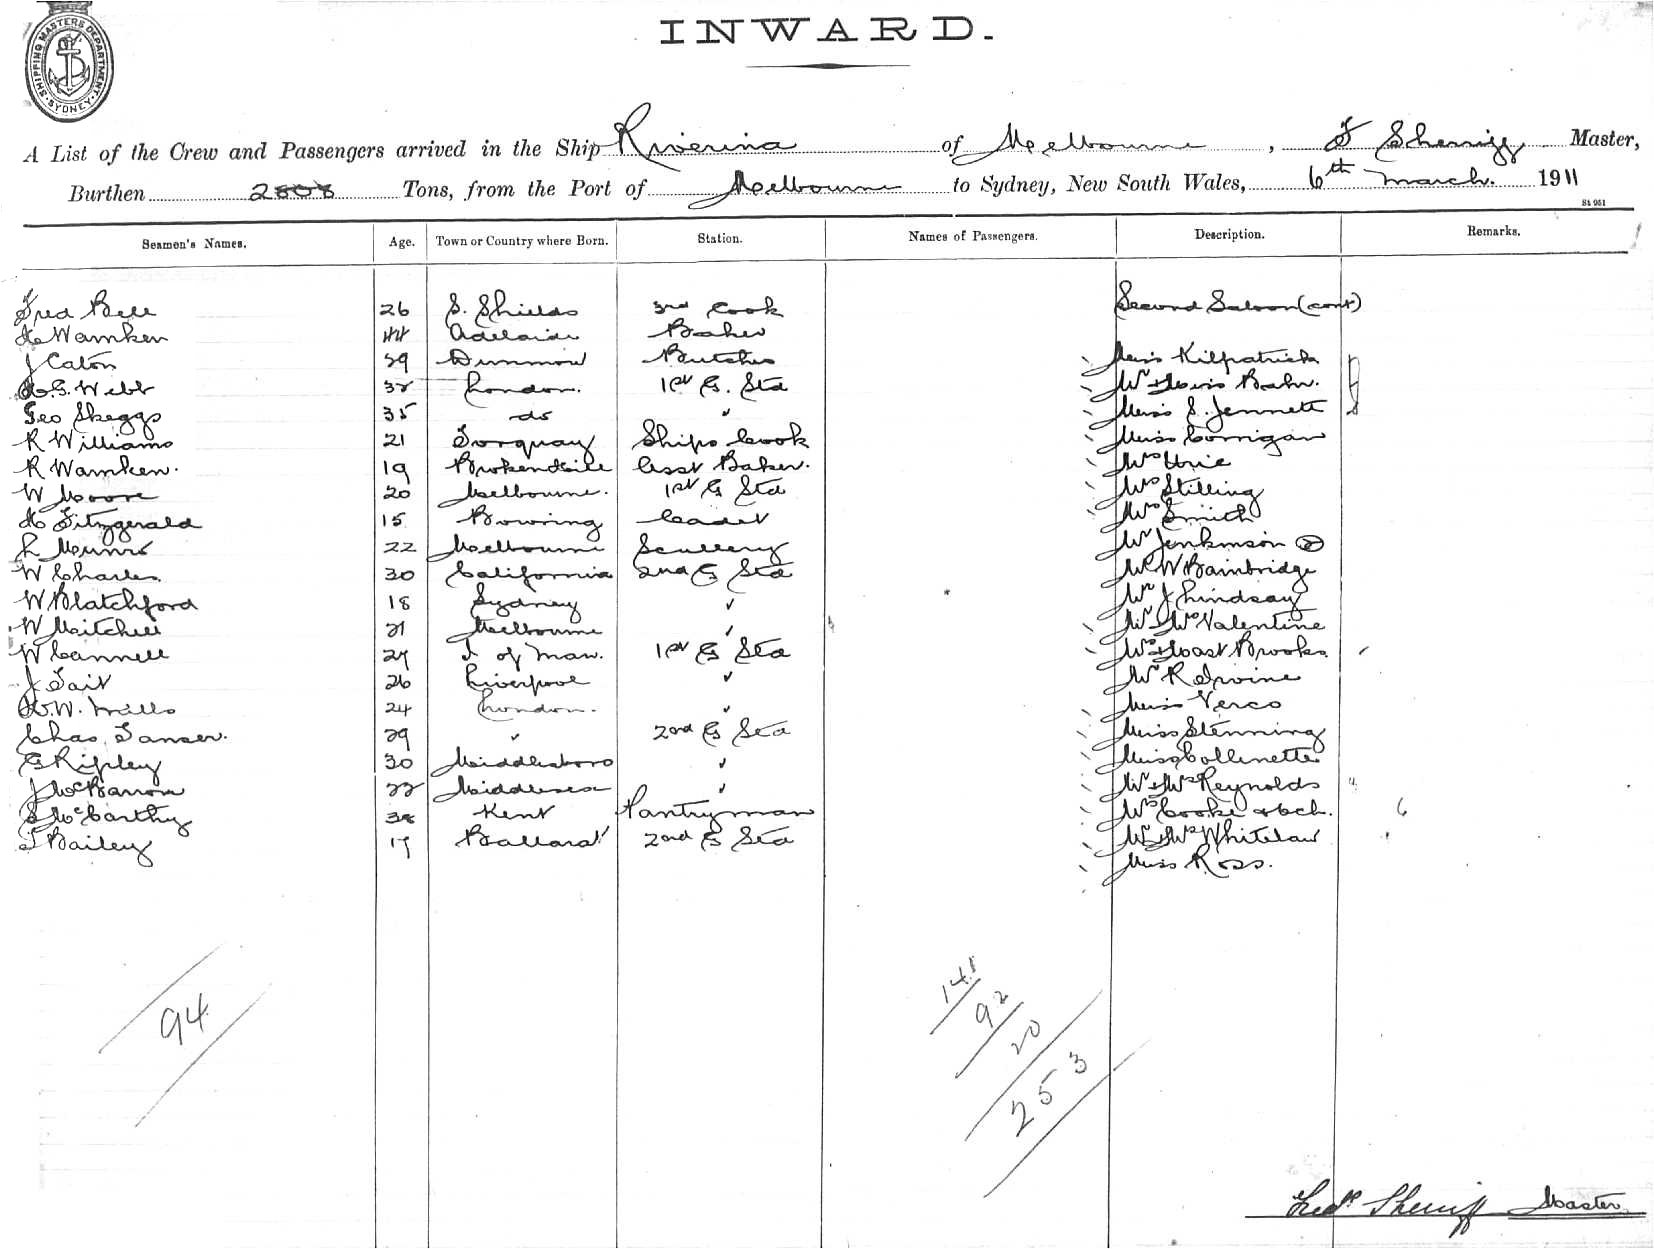 INWARD.
SHIPPING MASTERS DEPARTMENT SYDNEY
A List of the Crew and Passengers arrived in the Ship Riverina of Melbourne, F Sherriff Master,
Burthen Tons, from the Port of Melbourne to Sydney, New South Wales, 6th March. 1911
Seamen's Names. Age. Town or Country where Born. Station. Names of Passengers. Description. Remarks.
Second Saloon (cont)
Fred Bell 26 S. Shields 3rd Cook
Warnken 44 Adelaide Baker
J Caton 29 Dunmow Butcher Miss Kilpatrick
H.G. Webb 32 London. 1st G. Std Mr & Miss Bahr.
Geo Skeggs 35 do " Miss S. Jennett
R Williams 21 Torquay Ships Cook Miss Corrigan
R Warnken. 19 Broken Hill Asst Baker. Mrs Urie
W Moore 20 Melbourne. 1st G Std Mrs Stilling
H Fitzgerald 15 Bowring Cadet Mrs Smith
L Munro 22 Melbourne Scullery Mr Jenkinson
W Charles. 30 California 2nd G Std Mr W Bambridge
W Blatchford 18 Sydney " Mr J Lindsay
W Mitchell 21 Melbourne " Mr Mrs Valentine
W Cannell 27 I of Man. 1st G Std Brooks.
J Tait 26 Liverpool " Mr R Irvine
H.W. Mills 24 London. " Miss Verco
Chas. Tanser. 29 " 2nd G Std Miss Stenning
G Ripley 30 Middlesboro " Miss Collinette
J McBarron 22 Middlesex " Mr & Mrs Reynolds
S McCarthy 38 Kent Pantryman Mrs Cooke & 6ch. 6
T Bailey 17 Ballarat 2nd G Std Mr & Mrs Whitelaw
Miss Ross.
94
141
92
20
253
Fredk Sherriff Master